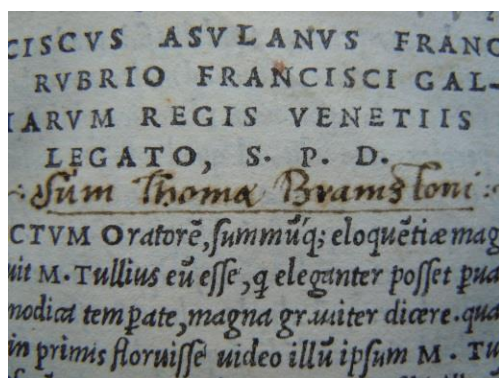 CISCVS ASVLANVS FRANC
RVBRIO FRANCISCI GAL-
IARVM REGIS VENETIIS
LEGATO, S. P. D.
·: Sum Thomæ Bramstoni :·
CTVM Oratorē, summũq; eloquētiæ mag
uit M. Tullius eũ esse, q eleganter posset ꝑua
modica temꝑate, magna grauiter dicere. qua
in primis floruisse uideo illũ ipsum M. Tu